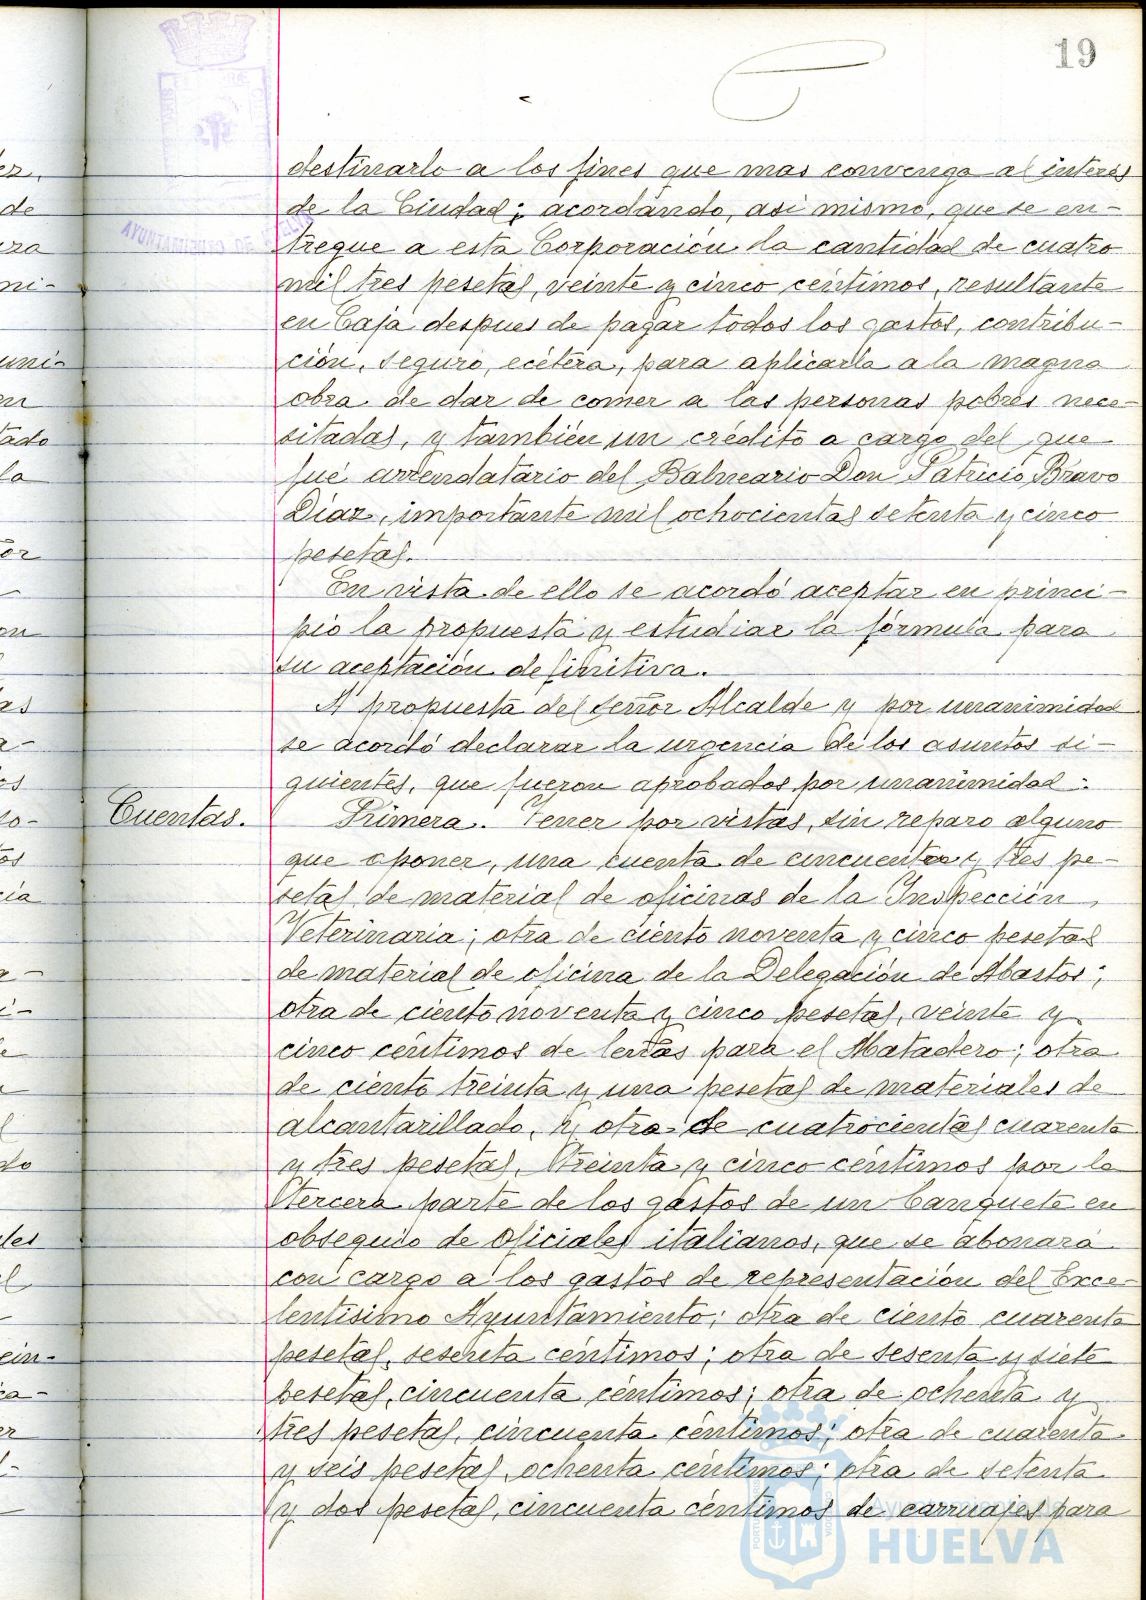 19
destinarlo a los fines que mas convenga al interés
de la Ciudad; acordando, asi mismo, que se en-
tregue a esta Corporación la cantidad de cuatro
mil tres pesetas, veinte y cinco céntimos, resultante
en Caja despues de pagar todos los gastos, contribu-
ción, seguro, ecétera, para aplicarla a la magna
obra de dar de comer a las personas pobres nece-
sitadas, y también un crédito a cargo del que
fué arrendatario del Balneario Don Patricio Bravo
Díaz, importante mil ochocientas setenta y cinco
pesetas.
En vista de ello se acordó aceptar en princi-
pio la propuesta y estudiar la fórmula para
su aceptación definitiva.
A propuesta del señor Alcalde y por unanimidad
se acordó declarar la urgencia de los asuntos si-
guientes, que fueron aprobados por unanimidad:
Cuentas. Primera. Tener por vistas, sin reparo alguno
que oponer, una cuenta de cincuenta y tres pe-
setas de material de oficinas de la Inspección
Veterinaria; otra de ciento noventa y cinco pesetas
de material de oficina de la Delegación de Abastos;
otra de ciento noventa y cinco pesetas, veinte y
cinco céntimos de leñas para el Matadero; otra
de ciento treinta y una pesetas de materiales de
alcantarillado, y otra de cuatrocientas cuarenta
y tres pesetas, treinta y cinco céntimos por la
tercera parte de los gastos de un banquete en
obsequio de oficiales italianos, que se abonará
con cargo a los gastos de representación del Exce-
lentísimo Ayuntamiento; otra de ciento cuarenta
pesetas, sesenta céntimos; otra de sesenta y siete
pesetas, cincuenta céntimos; otra de ochenta y
tres pesetas, cincuenta céntimos; otra de cuarenta
y seis pesetas, ochenta céntimos; otra de setenta
y dos pesetas, cincuenta céntimos de carruajes para
Ayuntamiento de
HUELVA